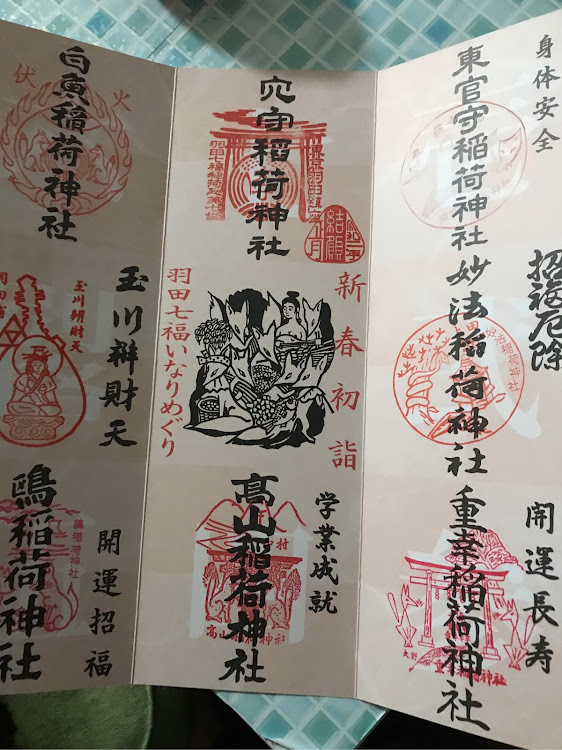 身体安全
東官守稲荷神社
招福厄除
妙法稲荷神社
開運長寿
重幸稲荷神社
穴守稲荷神社
結願
新春初詣
羽田七福いなりめぐり
学業成就
高山稲荷神社
火
伏
白魚稲荷神社
玉川辨財天
玉川辨財天
開運招福
鴎稲荷神社
鴎稲荷神社